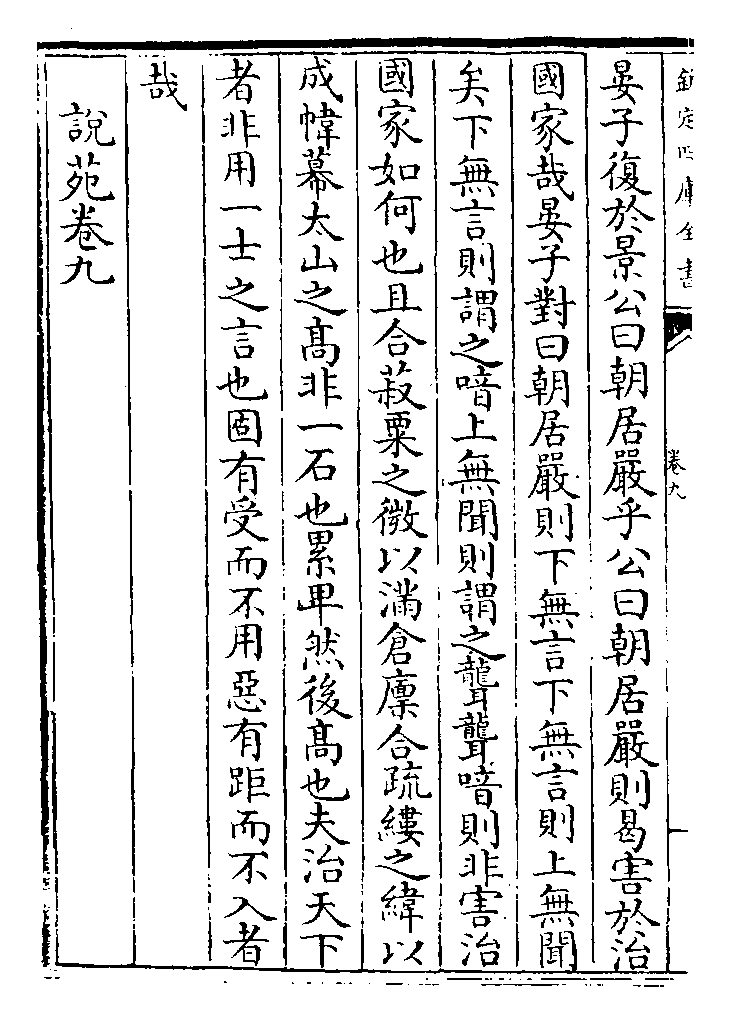 欽定四庫全書
卷九
晏子復於景公曰朝居嚴乎公曰朝居嚴則曷害於治
國家哉晏子對曰朝居嚴則下無言下無言則上無聞
矣下無言則謂之喑上無聞則謂之聾聾喑則非害治
國家如何也且合菽粟之微以滿倉廩合疏縷之緯以
成幃幕太山之髙非一石也累卑然後髙也夫治天下
者非用一士之言也固有受而不用惡有距而不入者
哉
說苑卷九